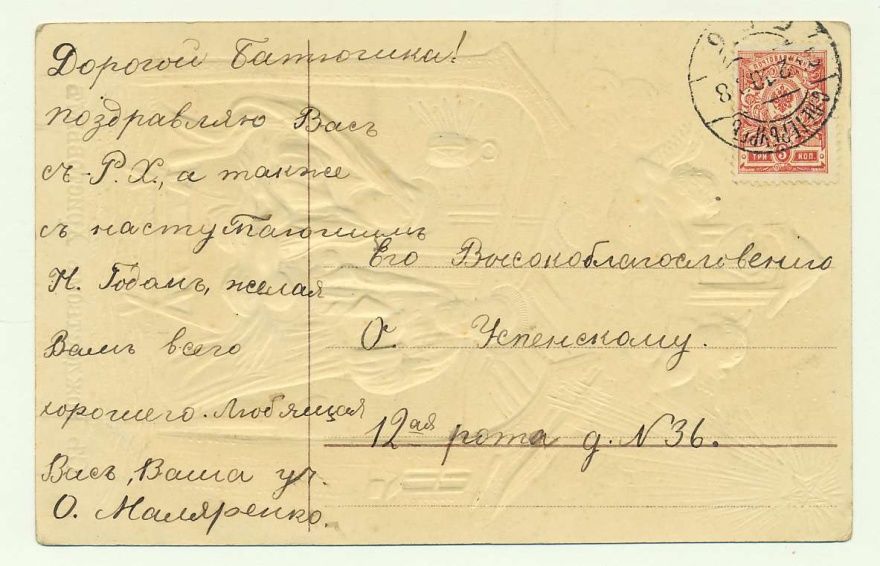 Дорогой Батюшка!
поздравляю Васъ
съ Р.Х., а также
съ наступающимъ
Н. Годомъ, желая
Вамъ всего
хорошего. Любящая
Васъ, Ваша уч.
О. Маляренко.
Его Высокоблагословенію
О. Успенскому.
12ая рота д. N 36.
С.ПЕТЕРБУРГЪ
ТРИ 3 КОП.